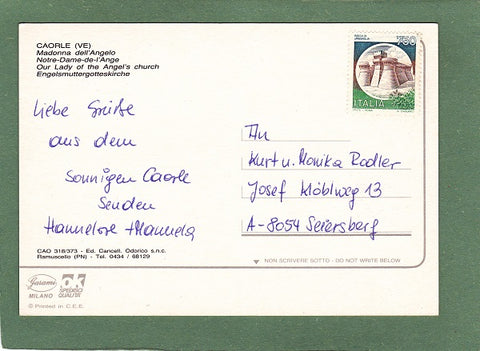 CAORLE (VE)
Madonna dell'Angelo
Notre-Dame-de-l'Ange
Our Lady of the Angel's church
Engelsmuttergotteskirche
750
ITALIA
Liebe Grüße
aus dem
Sonnigen Caorle
Senden
Hannelore + Manuela
An
Kurt u. Monika Rodler
Josef Klöblweg 13
A-8054 Seiersberg
CAO 318/373 - Ed. Cancell. Odorico s.n.c.
Ramuscello (PN) - Tel. 0434 / 68129
NON SCRIVERE SOTTO - DO NOT WRITE BELOW
Garami
MILANO
OK
SPEDIRO
QUALITÀ
© Printed in C.E.E.